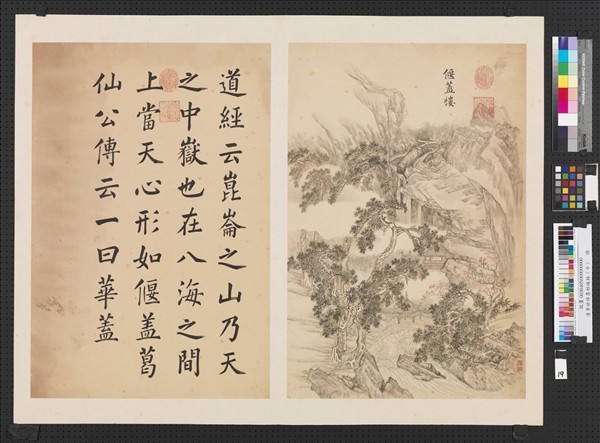 道經云崑崙之山乃天
之中嶽也在八海之間
上當天心形如偃盖葛
仙公傳云一曰華盖
偃盖樓
19